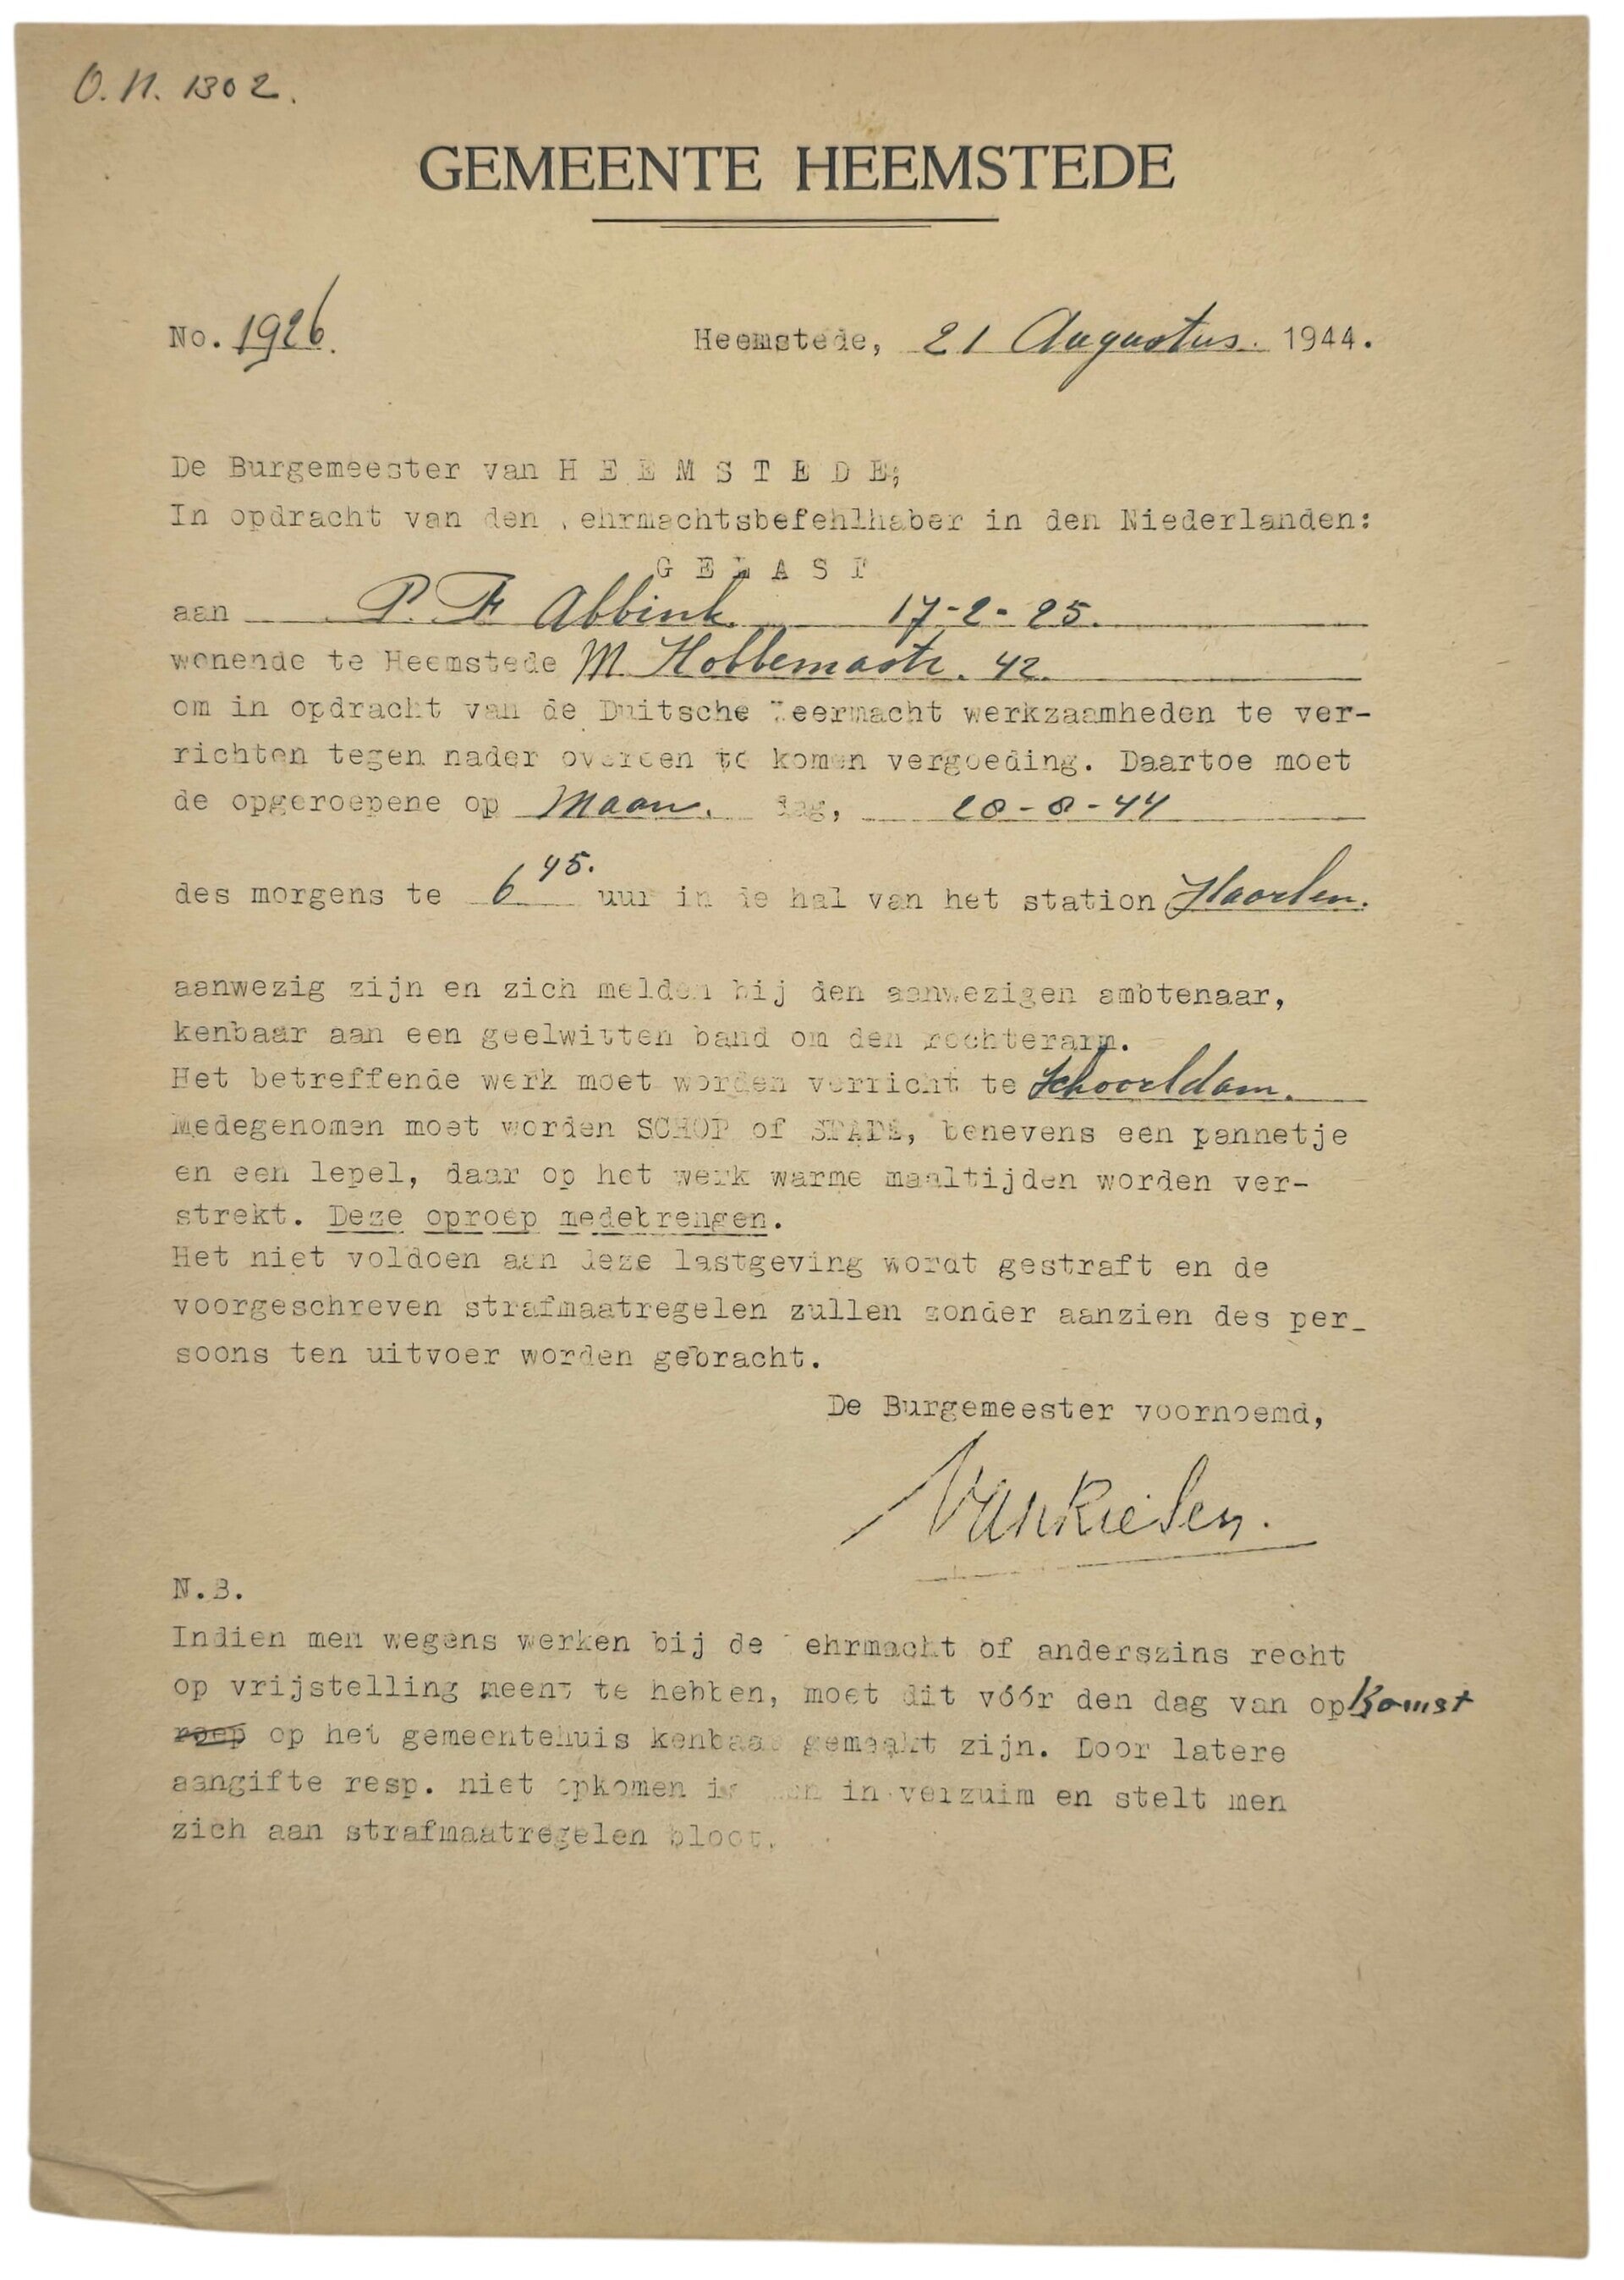 O.N. 1302.
GEMEENTE HEEMSTEDE
No. 1926.
Heemstede, 21 Augustus. 1944.
De Burgemeester van H E E M S T E D E;
In opdracht van den ehrmachtsbefehlhaber in den Niederlanden:
G E L A S T
aan P. F. Abbink. 17-2-25.
wonende te Heemstede M. Hobbemastr. 42.
om in opdracht van de Duitsche Weermacht werkzaamheden te ver-
richten tegen nader overeen te komen vergoeding. Daartoe moet
de opgeroepene op Maan. dag, 28-8-44
des morgens te 6 45. uur in de hal van het station Haarlem.
aanwezig zijn en zich melden bij den aanwezigen ambtenaar,
kenbaar aan een geelwitten band om den rechterarm.
Het betreffende werk moet worden verricht te Schoorldam.
Medegenomen moet worden SCHOP of SPADE, benevens een pannetje
en een lepel, daar op het werk warme maaltijden worden ver-
strekt. Deze oproep medebrengen.
Het niet voldoen aan deze lastgeving wordt gestraft en de
voorgeschreven strafmaatregelen zullen zonder aanzien des per_
soons ten uitvoer worden gebracht.
De Burgemeester voornoemd,
Van Riesen.
N.B.
Indien men wegens werken bij de ehrmacht of anderszins recht
op vrijstelling meent te hebben, moet dit vóór den dag van opkomst
roep op het gemeentehuis kenbaar gemaakt zijn. Door latere
aangifte resp. niet opkomen is men in verzuim en stelt men
zich aan strafmaatregelen bloot.